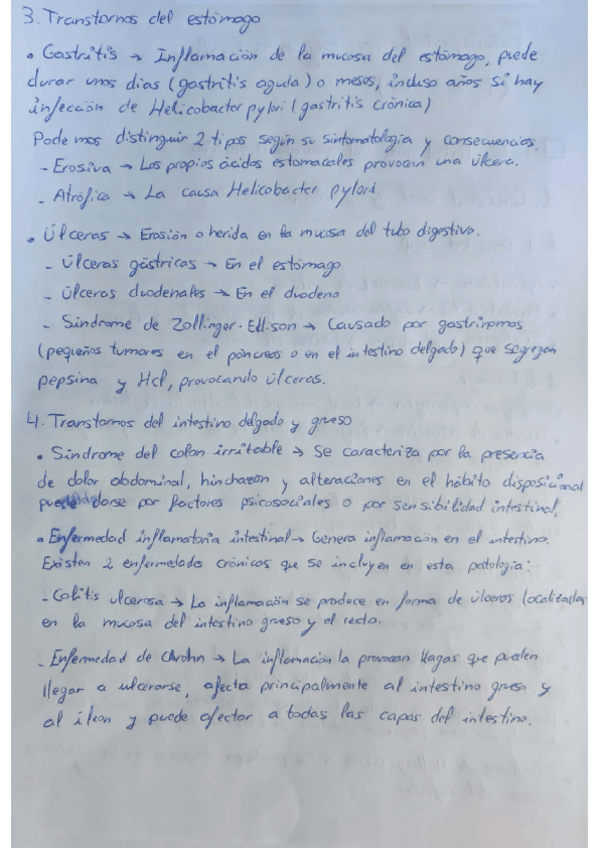 3. Transtornos del estómago
• Gastritis → Inflamación de la mucosa del estómago, puede
durar unos dias (gastritis aguda) o meses, incluso años si hay
infección de Helicobacter pylori (gastritis crónica)
Podemos distinguir 2 tipos según su sintomatología y consecuencias.
- Erosiva → Los propios ácidos estomacales provocan una úlcera.
- Atrófica → La causa Helicobacter pylori.
• Úlceras → Erosión o herida en la mucosa del tubo digestivo.
- Úlceras gástricas → En el estómago
- Úlceras duodenales → En el duodeno
- Sindrome de Zollinger-Ellison → Causado por gastrinomas
(pequeños tumores en el páncreas o en el intestino delgado) que segregan
pepsina y Hcl, provocando úlceras.
4. Transtornos del intestino delgado y grueso
• Sindrome del colon irritable → Se caracteriza por la presencia
de dolor abdominal, hinchazón y alteraciones en el hábito disposicional
puede darse por factores psicosociales o por sensibilidad intestinal.
• Enfermedad inflamatoria intestinal → Genera inflamación en el intestino.
Existen 2 enfermedades crónicas que se incluyen en esta patología:
- Colitis ulcerosa → La inflamación se produce en forma de úlceras localizadas
en la mucosa del intestino grueso y el recto.
- Enfermedad de Chrohn → La inflamación la provocan llagas que pueden
llegar a ulcerarse, afecta principalmente al intestino grueso y
al ileon y puede afectar a todas las capas del intestino.